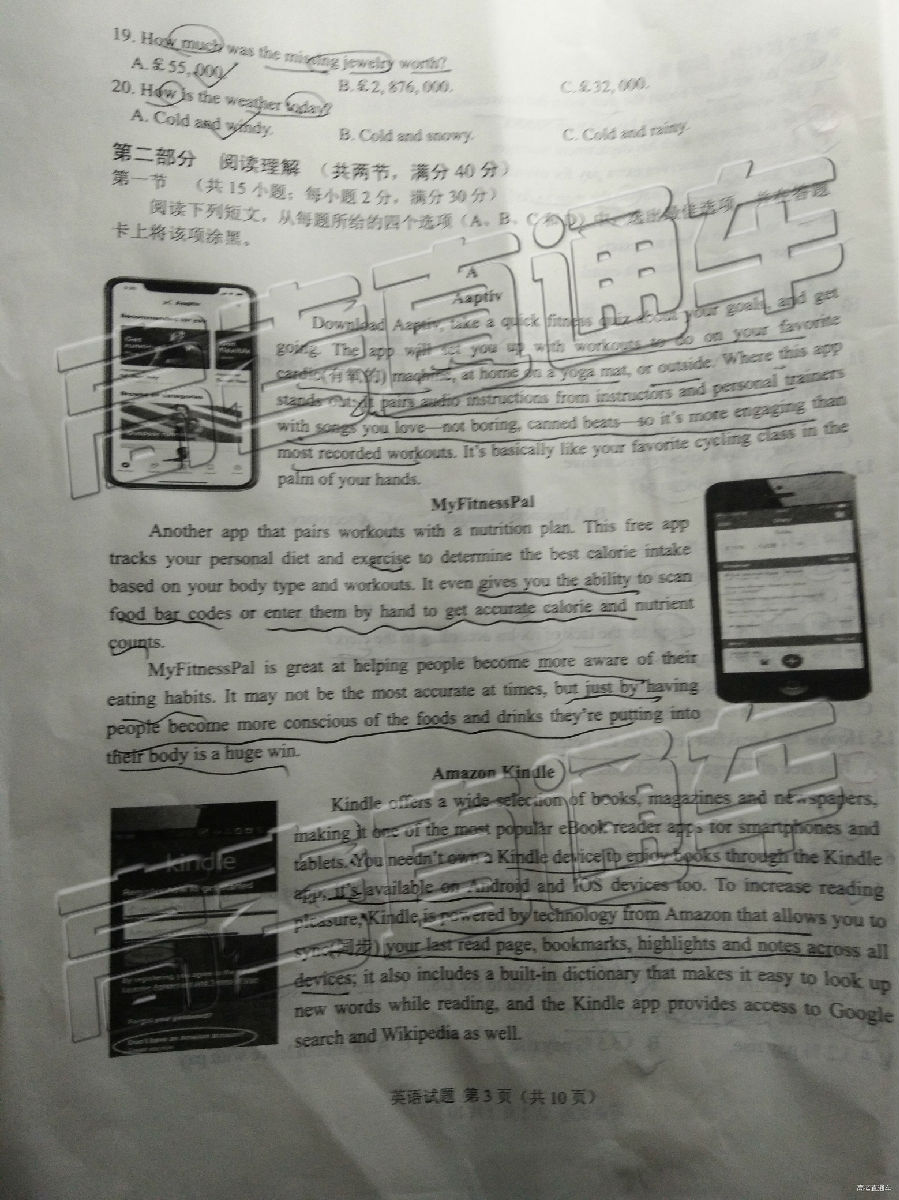 19. How much was the missing jewelry worth?
A. £55,000. B. £2,876,000. C. £32,000.
20. How is the weather today?
A. Cold and windy. B. Cold and snowy. C. Cold and rainy.
第二部分 阅读理解 (共两节, 满分 40 分)
第一节 (共 15 小题; 每小题 2 分, 满分 30 分)
阅读下列短文, 从每题所给的四个选项 (A、B、C 和 D) 中, 选出最佳选项, 并在答题
卡上将该项涂黑。
A
Aaptiv
Download Aaptiv, take a quick fitness quiz about your goals, and get
going. The app will set you up with workouts to do on your favorite
cardio(有氧的) machine, at home on a yoga mat, or outside. Where this app
stands out: it pairs audio instructions from instructors and personal trainers
with songs you love—not boring, canned beats—so it's more engaging than
most recorded workouts. It's basically like your favorite cycling class in the
palm of your hands.
MyFitnessPal
Another app that pairs workouts with a nutrition plan. This free app
tracks your personal diet and exercise to determine the best calorie intake
based on your body type and workouts. It even gives you the ability to scan
food bar codes or enter them by hand to get accurate calorie and nutrient
counts.
MyFitnessPal is great at helping people become more aware of their
eating habits. It may not be the most accurate at times, but just by having
people become more conscious of the foods and drinks they're putting into
their body is a huge win.
Amazon Kindle
kindle
Kindle offers a wide selection of books, magazines and newspapers,
making it one of the most popular eBook reader apps for smartphones and
tablets. You needn't own a Kindle device to enjoy books through the Kindle
app, it's available on Android and iOS devices too. To increase reading
pleasure, Kindle is powered by technology from Amazon that allows you to
sync(同步) your last read page, bookmarks, highlights and notes across all
devices; it also includes a built-in dictionary that makes it easy to look up
new words while reading, and the Kindle app provides access to Google
search and Wikipedia as well.
英语试题 第 3 页 (共 10 页)
高考直通车
高考直通车
高考直通车